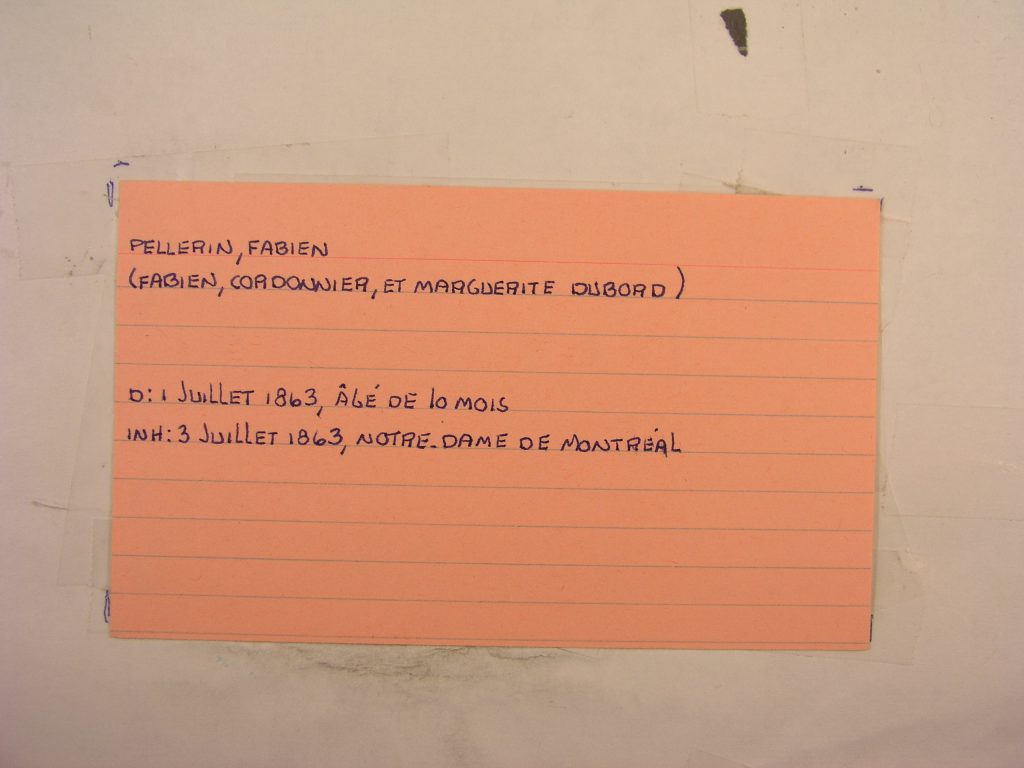 PELLERIN, FABIEN
(FABIEN, CORDONNIER, ET MARGUERITE DUBORD)
D: 1 JUILLET 1863, ÂGÉ DE 10 MOIS
INH: 3 JUILLET 1863, NOTRE-DAME DE MONTRÉAL